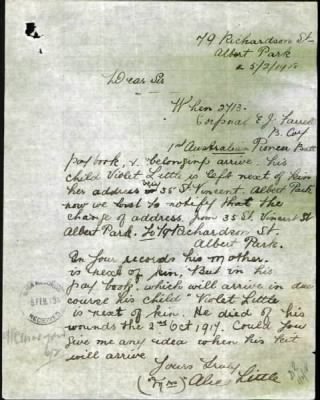 79 Richardson St.
Albert Park
5/2/1918
Dear Sir
When 2713.
Corporal E J. Farrell
B. Coy
1st Australian Pioneer Batt
pay book, & belonging arrive. his
child Violet Little is left next of kin
her address 35 St Vincent. Albert Park
now we want to notify that the
change of address. from 35 St. Vincent St
Albert Park. To 79 Richardson St.
Albert Park.
In your records his mother.
is next of kin. But in his
"pay book" which will arrive in due
course his child "Violet Little
is next of kin. He died of his
wounds the 2nd Oct 1917. Could you
give me any idea when his kit
will arrive
Yours truly
(Mrs) Alice Little
6 FEB 1918
RECEIVED